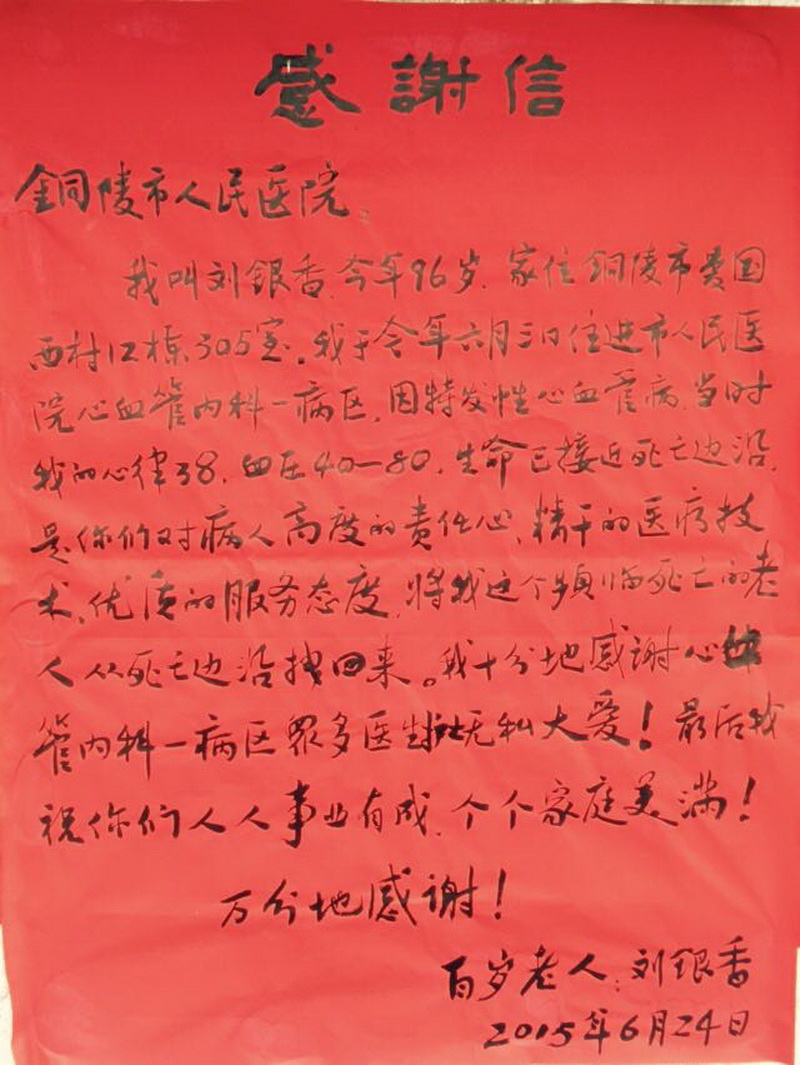 感謝信
銅陵市人民医院:
我叫刘銀香,今年96岁,家住銅陵市黄国
西村12栋305室。我于今年六月三日住进市人民医
院心血管内科一病区,因特发性心血管病,当时
我的心律38,血压40—80,生命已接近死亡边沿,
是你们对病人高度的责任心、精干的医疗技
术、优质的服务态度,将我这个频临死亡的老
人从死亡边沿找回来。我十分地感谢心血
管内科一病区眾多医生无私大爱!最后我
祝你们人人事业有成,个个家庭美满!
万分地感谢!
百岁老人:刘銀香
2015年6月24日